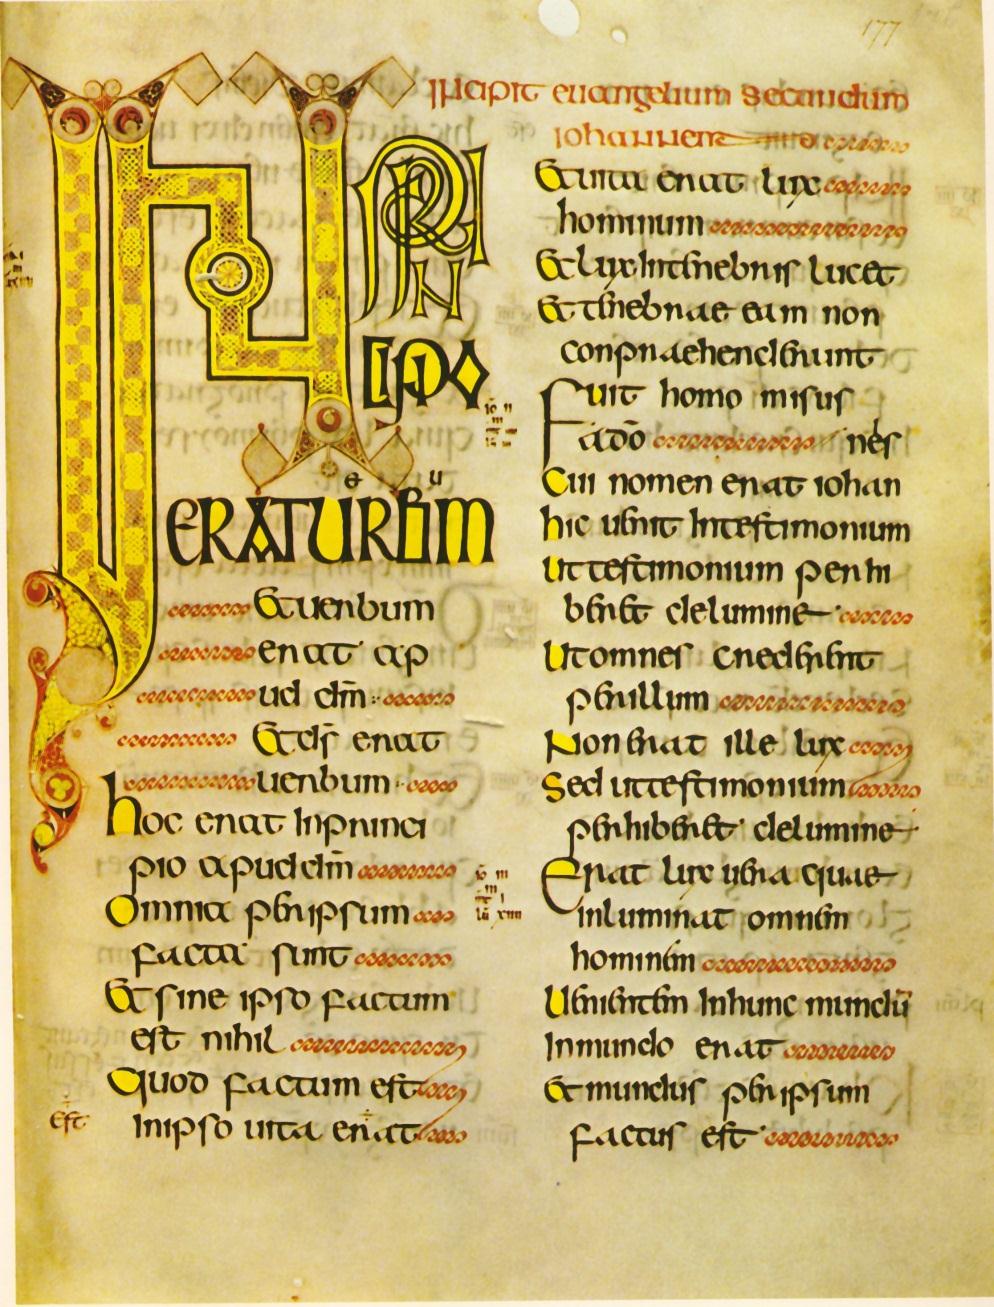 177
Incipit euangelium secundum
iohannem
IN PRI
N
CIPO
ERATURBUM
Et uerbum
erat ap
ud dm̄
Et ds̄ erat
uerbum
hoc erat Inprinci
pio apud dm̄
Omnia per ipsum
facta sunt
Et sine ipso factum
est nihil
Quod factum est
est
Inipso uita erat
Et uita erat lux
hominum
Et lux Intenebris lucet
Et tenebrae eam non
conpraehenderunt
Fuit homo misus
ado nēs
Cui nomen erat iohan
hic uenit Intestimonium
Ut testimonium perhi
beret delumine
Ut omnes crederent
per illum
Non erat ille lux
Sed ut testimonium
perhiberet delumine
Erat lux uera quae
inluminat omnem
hominem
Uenientem Inhunc mundū
Inmundo erat
et mundus per ipsum
factus est